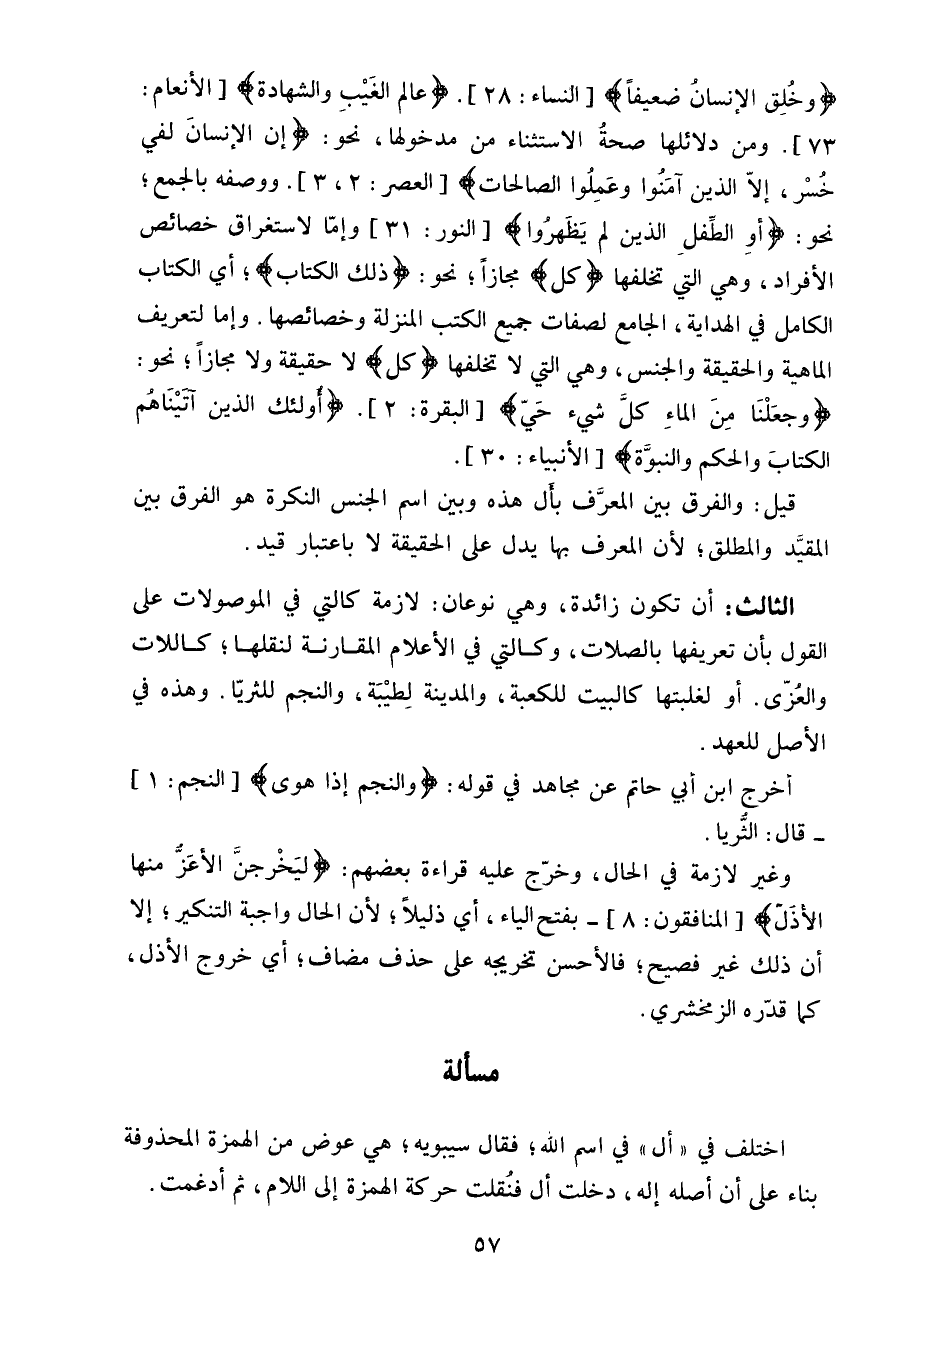 ﴿وخُلِق الإنسانُ ضعيفاً﴾ [النساء: ٢٨]. ﴿عالم الغَيْبِ والشهادة﴾ [الأنعام:
٧٣]. ومن دلائلها صحةُ الاستثناء من مدخولها، نحو: ﴿إن الإنسانَ لفي
خُسْر، إلاّ الذين آمَنُوا وعَمِلُوا الصالحات﴾ [العصر: ٢، ٣]. ووصفه بالجمع؛
نحو: ﴿أوِ الطِّفلِ الذين لم يَظَهرُوا﴾ [النور: ٣١] وإمّا لاستغراق خصائص
الأفراد، وهي التي تخلفها ﴿كل﴾ مجازاً؛ نحو: ﴿ذلك الكتاب﴾؛ أي الكتاب
الكامل في الهداية، الجامع لصفات جميع الكتب المنزلة وخصائصها. وإما لتعريف
الماهية والحقيقة والجنس، وهي التي لا تخلفها ﴿كل﴾ لا حقيقة ولا مجازاً؛ نحو:
﴿وجعَلْنَا مِنَ الماءِ كلَّ شيء حَيّ﴾ [البقرة: ٢]. ﴿أُولئك الذين آتَيْنَاهُم
الكتابَ والحكم والنبوَّة﴾ [الأنبياء: ٣٠].
قيل: والفرق بين المعرَّف بأَل هذه وبين اسم الجنس النكرة هو الفرق بين
المقيَّد والمطلق؛ لأن المعرف بها يدل على الحقيقة لا باعتبار قيد.
الثالث: أن تكون زائدة، وهي نوعان: لازمة كالتي في الموصولات على
القول بأن تعريفها بالصلات، وكالتي في الأعلام المقارنة لنقلها؛ كاللات
والعُزّى. أو لغلبتها كالبيت للكعبة، والمدينة لِطيْبَة، والنجم للثريّا. وهذه في
الأصل للعهد.
أخرج ابن أبي حاتم عن مجاهد في قوله: ﴿والنجم إذا هوى﴾ [النجم: ١]
ـ قال: الثُّريا.
وغير لازمة في الحال، وخرّج عليه قراءة بعضهم: ﴿ليَخْرجنَّ الأعَزُّ منها
الأذَلّ﴾ [المنافقون: ٨] ـ بفتح الياء، أي ذليلاً؛ لأن الحال واجبة التنكير؛ إلا
أن ذلك غير فصيح؛ فالأحسن تخريجه على حذف مضاف؛ أي خروج الأذل،
كما قدّره الزمخشري.
مسألة
اختلف في «أل» في اسم الله؛ فقال سيبويه؛ هي عوض من الهمزة المحذوفة
بناء على أن أصله إله، دخلت أل فنُقلت حركة الهمزة إلى اللام، ثم أدغمت.
٥٧